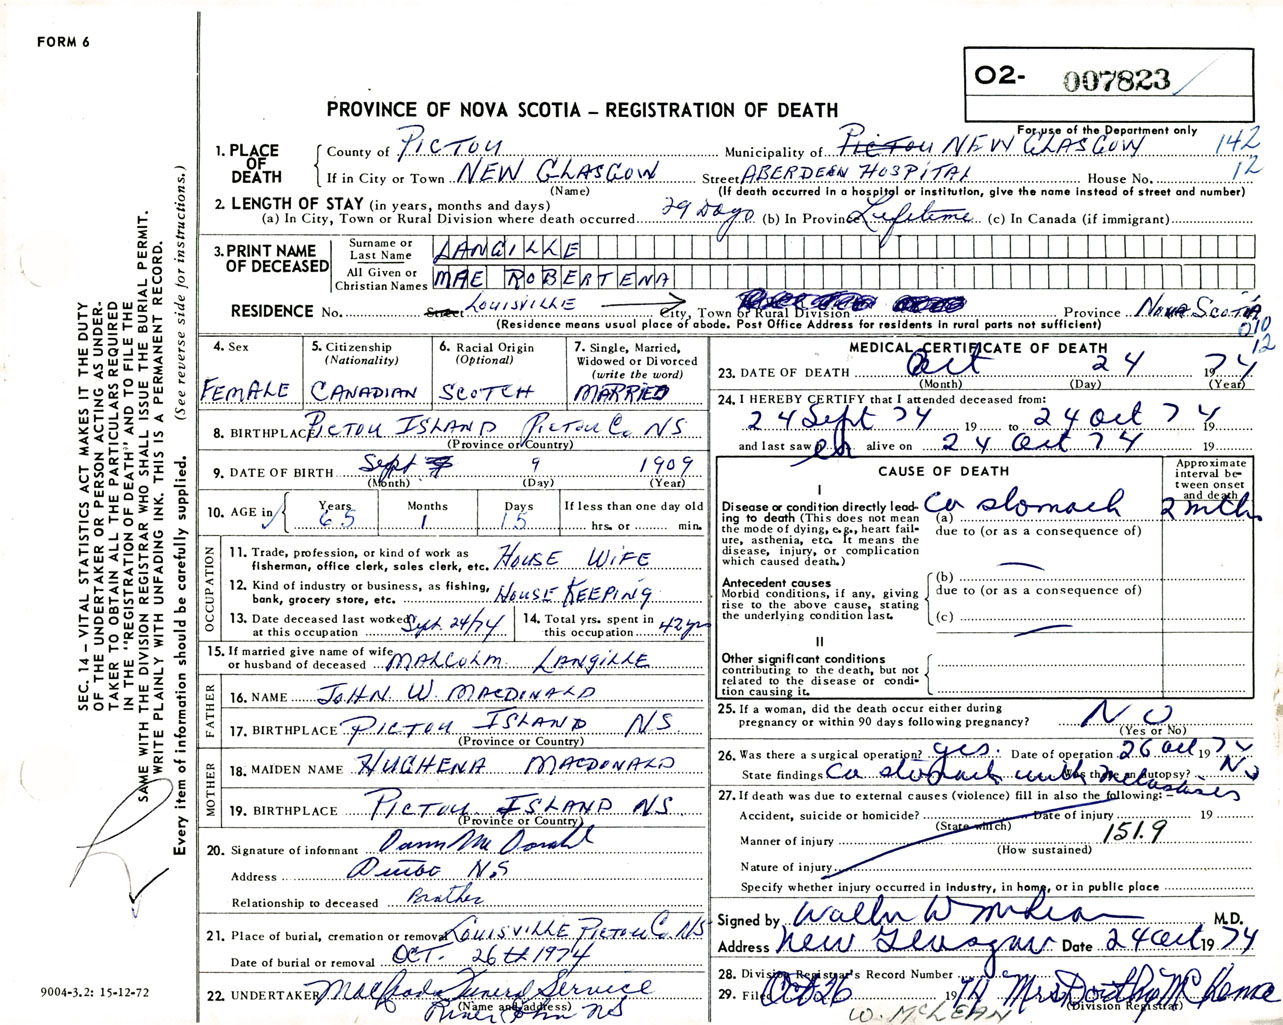 FORM 6
O2- 007823
PROVINCE OF NOVA SCOTIA – REGISTRATION OF DEATH
For use of the Department only
142
12
1. PLACE OF DEATH
County of PICTOU Municipality of PICTOU NEW GLASGOW
If in City or Town NEW GLASGOW Street ABERDEEN HOSPITAL House No.
(Name) (If death occurred in a hospital or institution, give the name instead of street and number)
2. LENGTH OF STAY (in years, months and days)
(a) In City, Town or Rural Division where death occurred 29 Days (b) In Province Lifetime (c) In Canada (if immigrant)
3. PRINT NAME OF DECEASED
Surname or Last Name LANGILLE
All Given or Christian Names MAE ROBERTENA
RESIDENCE No. Street LOUISVILLE City, Town or Rural Division Province NOVA SCOTIA
(Residence means usual place of abode. Post Office Address for residents in rural parts not sufficient)
010
12
4. Sex FEMALE
5. Citizenship (Nationality) CANADIAN
6. Racial Origin (Optional) SCOTCH
7. Single, Married, Widowed or Divorced (write the word) MARRIED
8. BIRTHPLACE PICTOU ISLAND PICTOU Co. NS
(Province or Country)
9. DATE OF BIRTH Sept 9 1909
(Month) (Day) (Year)
10. AGE in Years 65 Months 1 Days 15 If less than one day old hrs. or min.
OCCUPATION
11. Trade, profession, or kind of work as fisherman, office clerk, sales clerk, etc. HOUSE WIFE
12. Kind of industry or business, as fishing, bank, grocery store, etc. HOUSE KEEPING
13. Date deceased last worked at this occupation Sept. 24/74
14. Total yrs. spent in this occupation 42 yrs
15. If married give name of wife or husband of deceased MALCOLM LANGILLE
FATHER
16. NAME JOHN W. MACDONALD
17. BIRTHPLACE PICTOU ISLAND NS
(Province or Country)
MOTHER
18. MAIDEN NAME HUGHENA MACDONALD
19. BIRTHPLACE PICTOU ISLAND NS
(Province or Country)
20. Signature of informant
Address N.S
Relationship to deceased Brother
21. Place of burial, cremation or removal LOUISVILLE PICTOU Co. NS
Date of burial or removal OCT. 26th 1974
22. UNDERTAKER Funeral Service
(Name and address)
River John NS
MEDICAL CERTIFICATE OF DEATH
23. DATE OF DEATH Oct 24 1974
(Month) (Day) (Year)
24. I HEREBY CERTIFY that I attended deceased from:
24 Sept 74 19 to 24 Oct 74 19
and last saw er alive on 24 Oct 74 19
CAUSE OF DEATH
Approximate interval between onset and death
I
Disease or condition directly leading to death (This does not mean the mode of dying, e.g., heart failure, asthenia, etc. It means the disease, injury, or complication which caused death.)
(a) Ca stomach 2 mths
due to (or as a consequence of)
Antecedent causes
Morbid conditions, if any, giving rise to the above cause, stating the underlying condition last.
(b)
due to (or as a consequence of)
(c)
II
Other significant conditions
contributing to the death, but not related to the disease or condition causing it.
25. If a woman, did the death occur either during pregnancy or within 90 days following pregnancy? NO
(Yes or No)
26. Was there a surgical operation? yes. Date of operation 26 Oct 1974
State findings Ca stomach with metastases Was there an autopsy? No
27. If death was due to external causes (violence) fill in also the following:–
Accident, suicide or homicide? Date of injury 19
(State which)
Manner of injury 151.9
(How sustained)
Nature of injury
Specify whether injury occurred in industry, in home, or in public place
Signed by Walter W McLean M.D.
Address New Glasgow Date 24 Oct 1974
28. Division Registrar's Record Number
29. Filed Oct 26 1974 Mrs Dorothy McKenna
(Division Registrar)
W. McLEAN
SEC. 14 – VITAL STATISTICS ACT MAKES IT THE DUTY
OF THE UNDERTAKER OR PERSON ACTING AS UNDER-
TAKER TO OBTAIN ALL THE PARTICULARS REQUIRED
IN THE "REGISTRATION OF DEATH" AND TO FILE THE
SAME WITH THE DIVISION REGISTRAR WHO SHALL ISSUE THE BURIAL PERMIT.
WRITE PLAINLY WITH UNFADING INK. THIS IS A PERMANENT RECORD.
Every item of information should be carefully supplied. (See reverse side for instructions.)
9004-3.2: 15-12-72